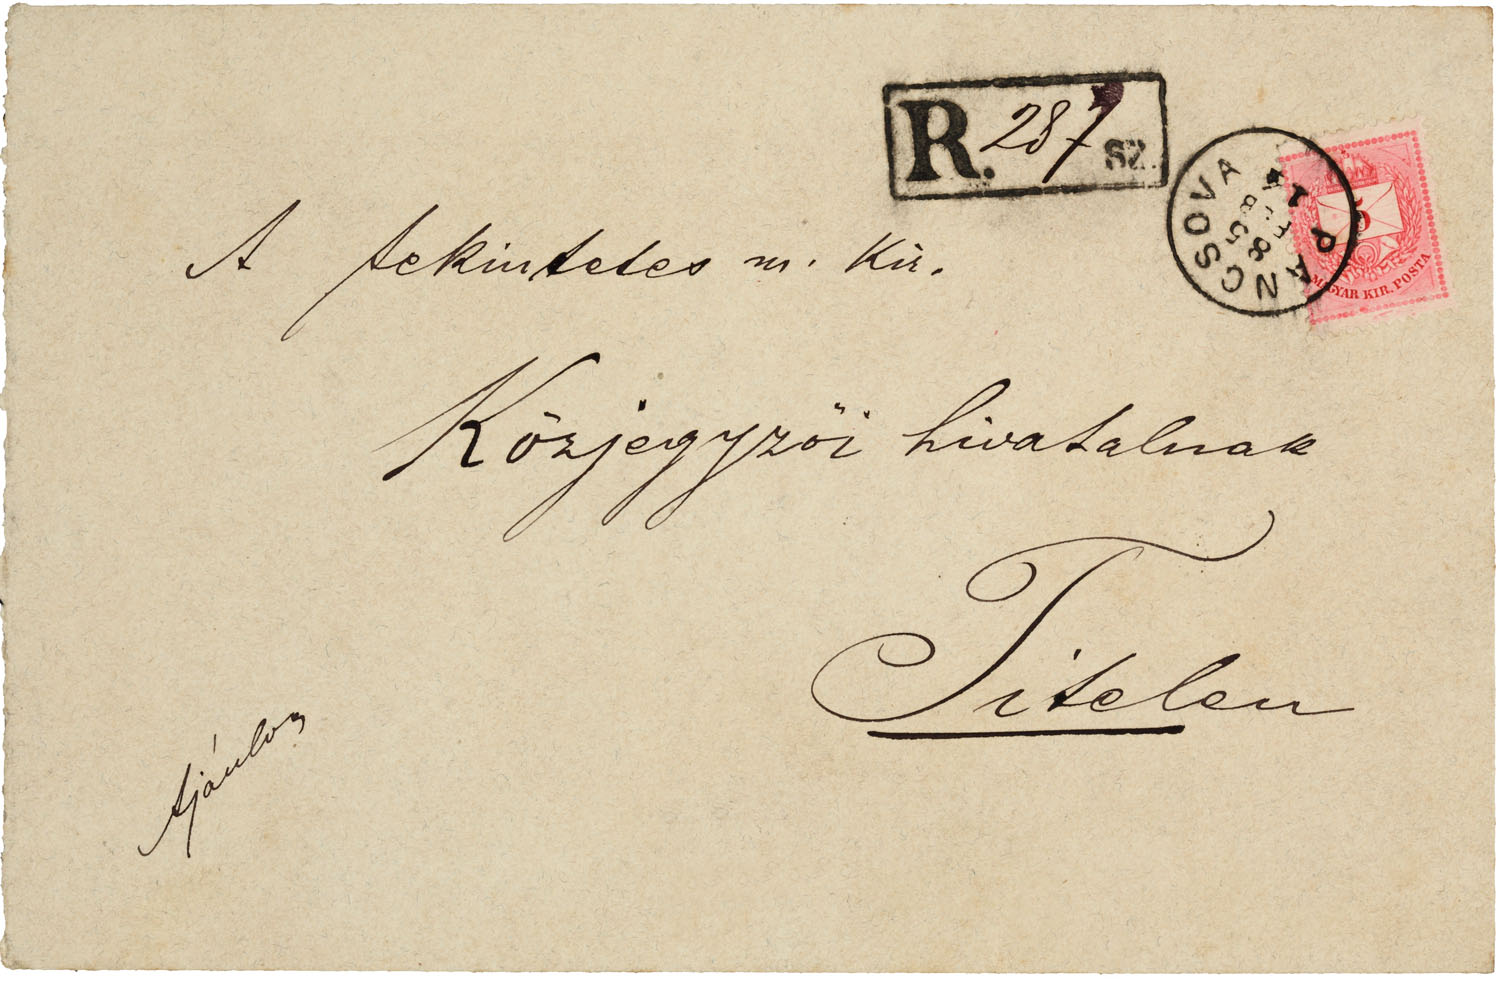 R. 287 SZ.
PANCSOVA
5
MAGYAR KIR. POSTA
A tekintetes m. kir.
Közjegyzői hivatalnak
Titelen
Ajánlva